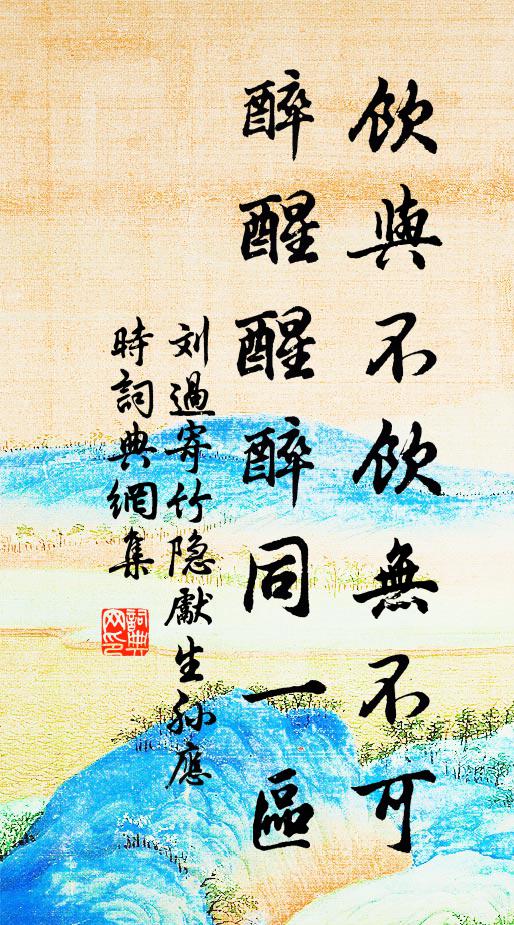 飲與不飲無不可
醉醒醒醉同一區
刘過寄竹隐獻生孙應
時詞典網集
詞典
网印